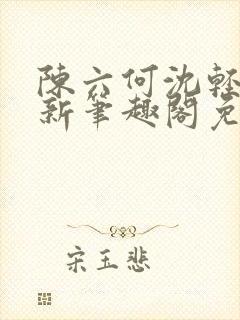 陳六何沈輕
新筆趣閣免
宋玉悲